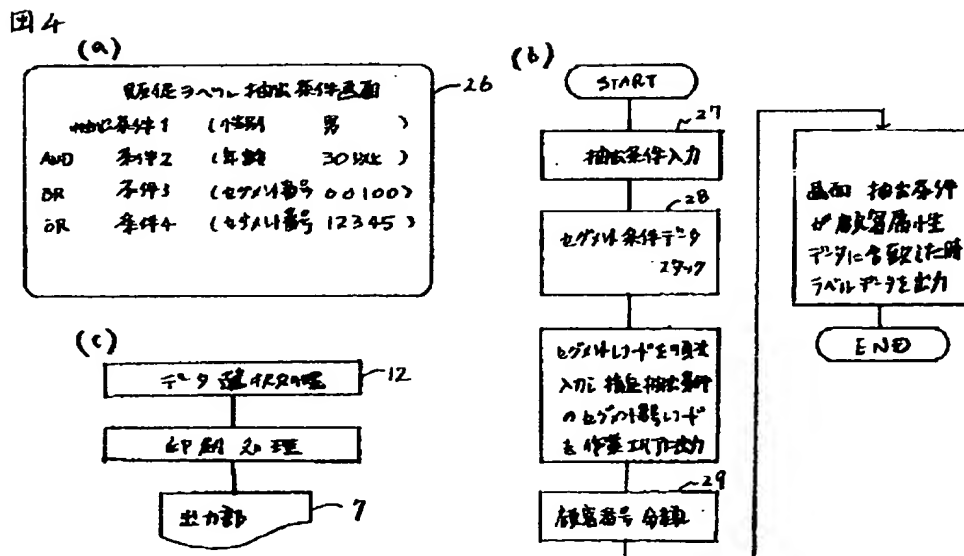 図4
(a)
26
販促ラベル抽出条件画面
抽出条件1 (性別 男 )
AND 条件2 (年齢 30以上 )
OR 条件3 (セグメント番号 00100)
OR 条件4 (セグメント番号 12345)
(b)
START
27
抽出条件入力
28
セグメント条件データ
スタック
セグメントレコードを順次
入力し 指定抽出条件
のセグメント番号レコード
を作業エリアに出力
29
顧客番号 分類
画面 抽出条件
が 顧客属性
データに合致した時
ラベルデータを出力
END
(c)
データ選択処理
12
印刷処理
出力部
7